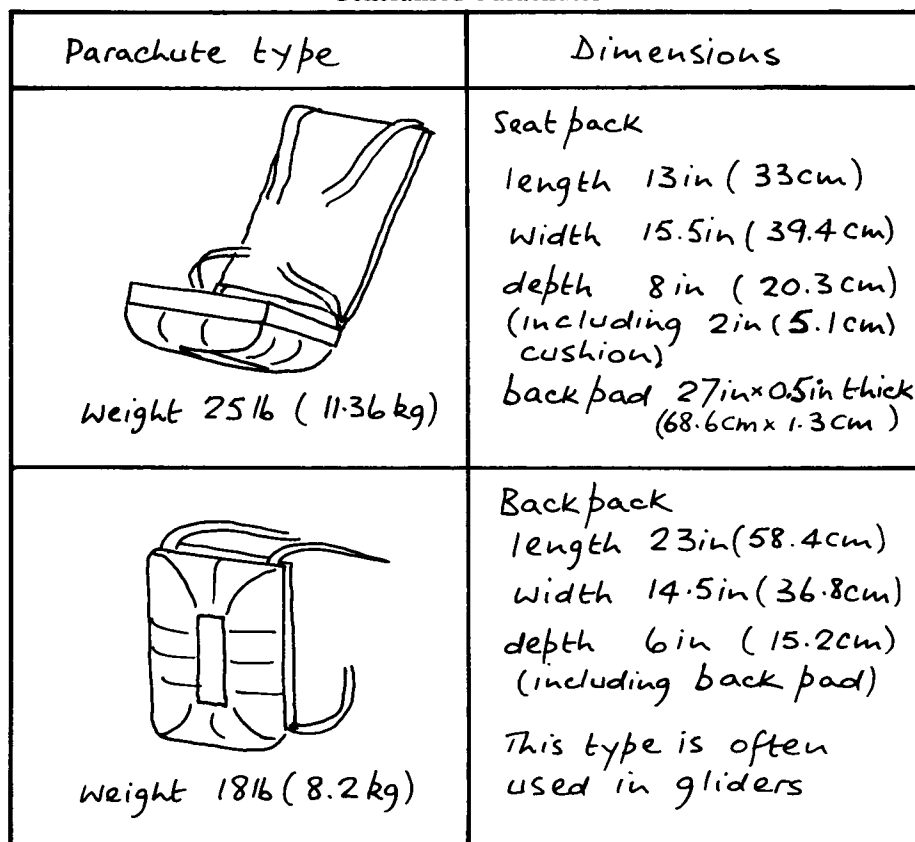 Parachute type
Dimensions
weight 25 lb (11.36 kg)
Seat pack
length 13in (33cm)
width 15.5in (39.4cm)
depth 8in (20.3cm)
(including 2in (5.1cm)
cushion)
back pad 27in×0.5in thick
(68.6cm × 1.3cm)
weight 18lb (8.2kg)
Back pack
length 23in (58.4cm)
width 14.5in (36.8cm)
depth 6in (15.2cm)
(including back pad)
This type is often
used in gliders